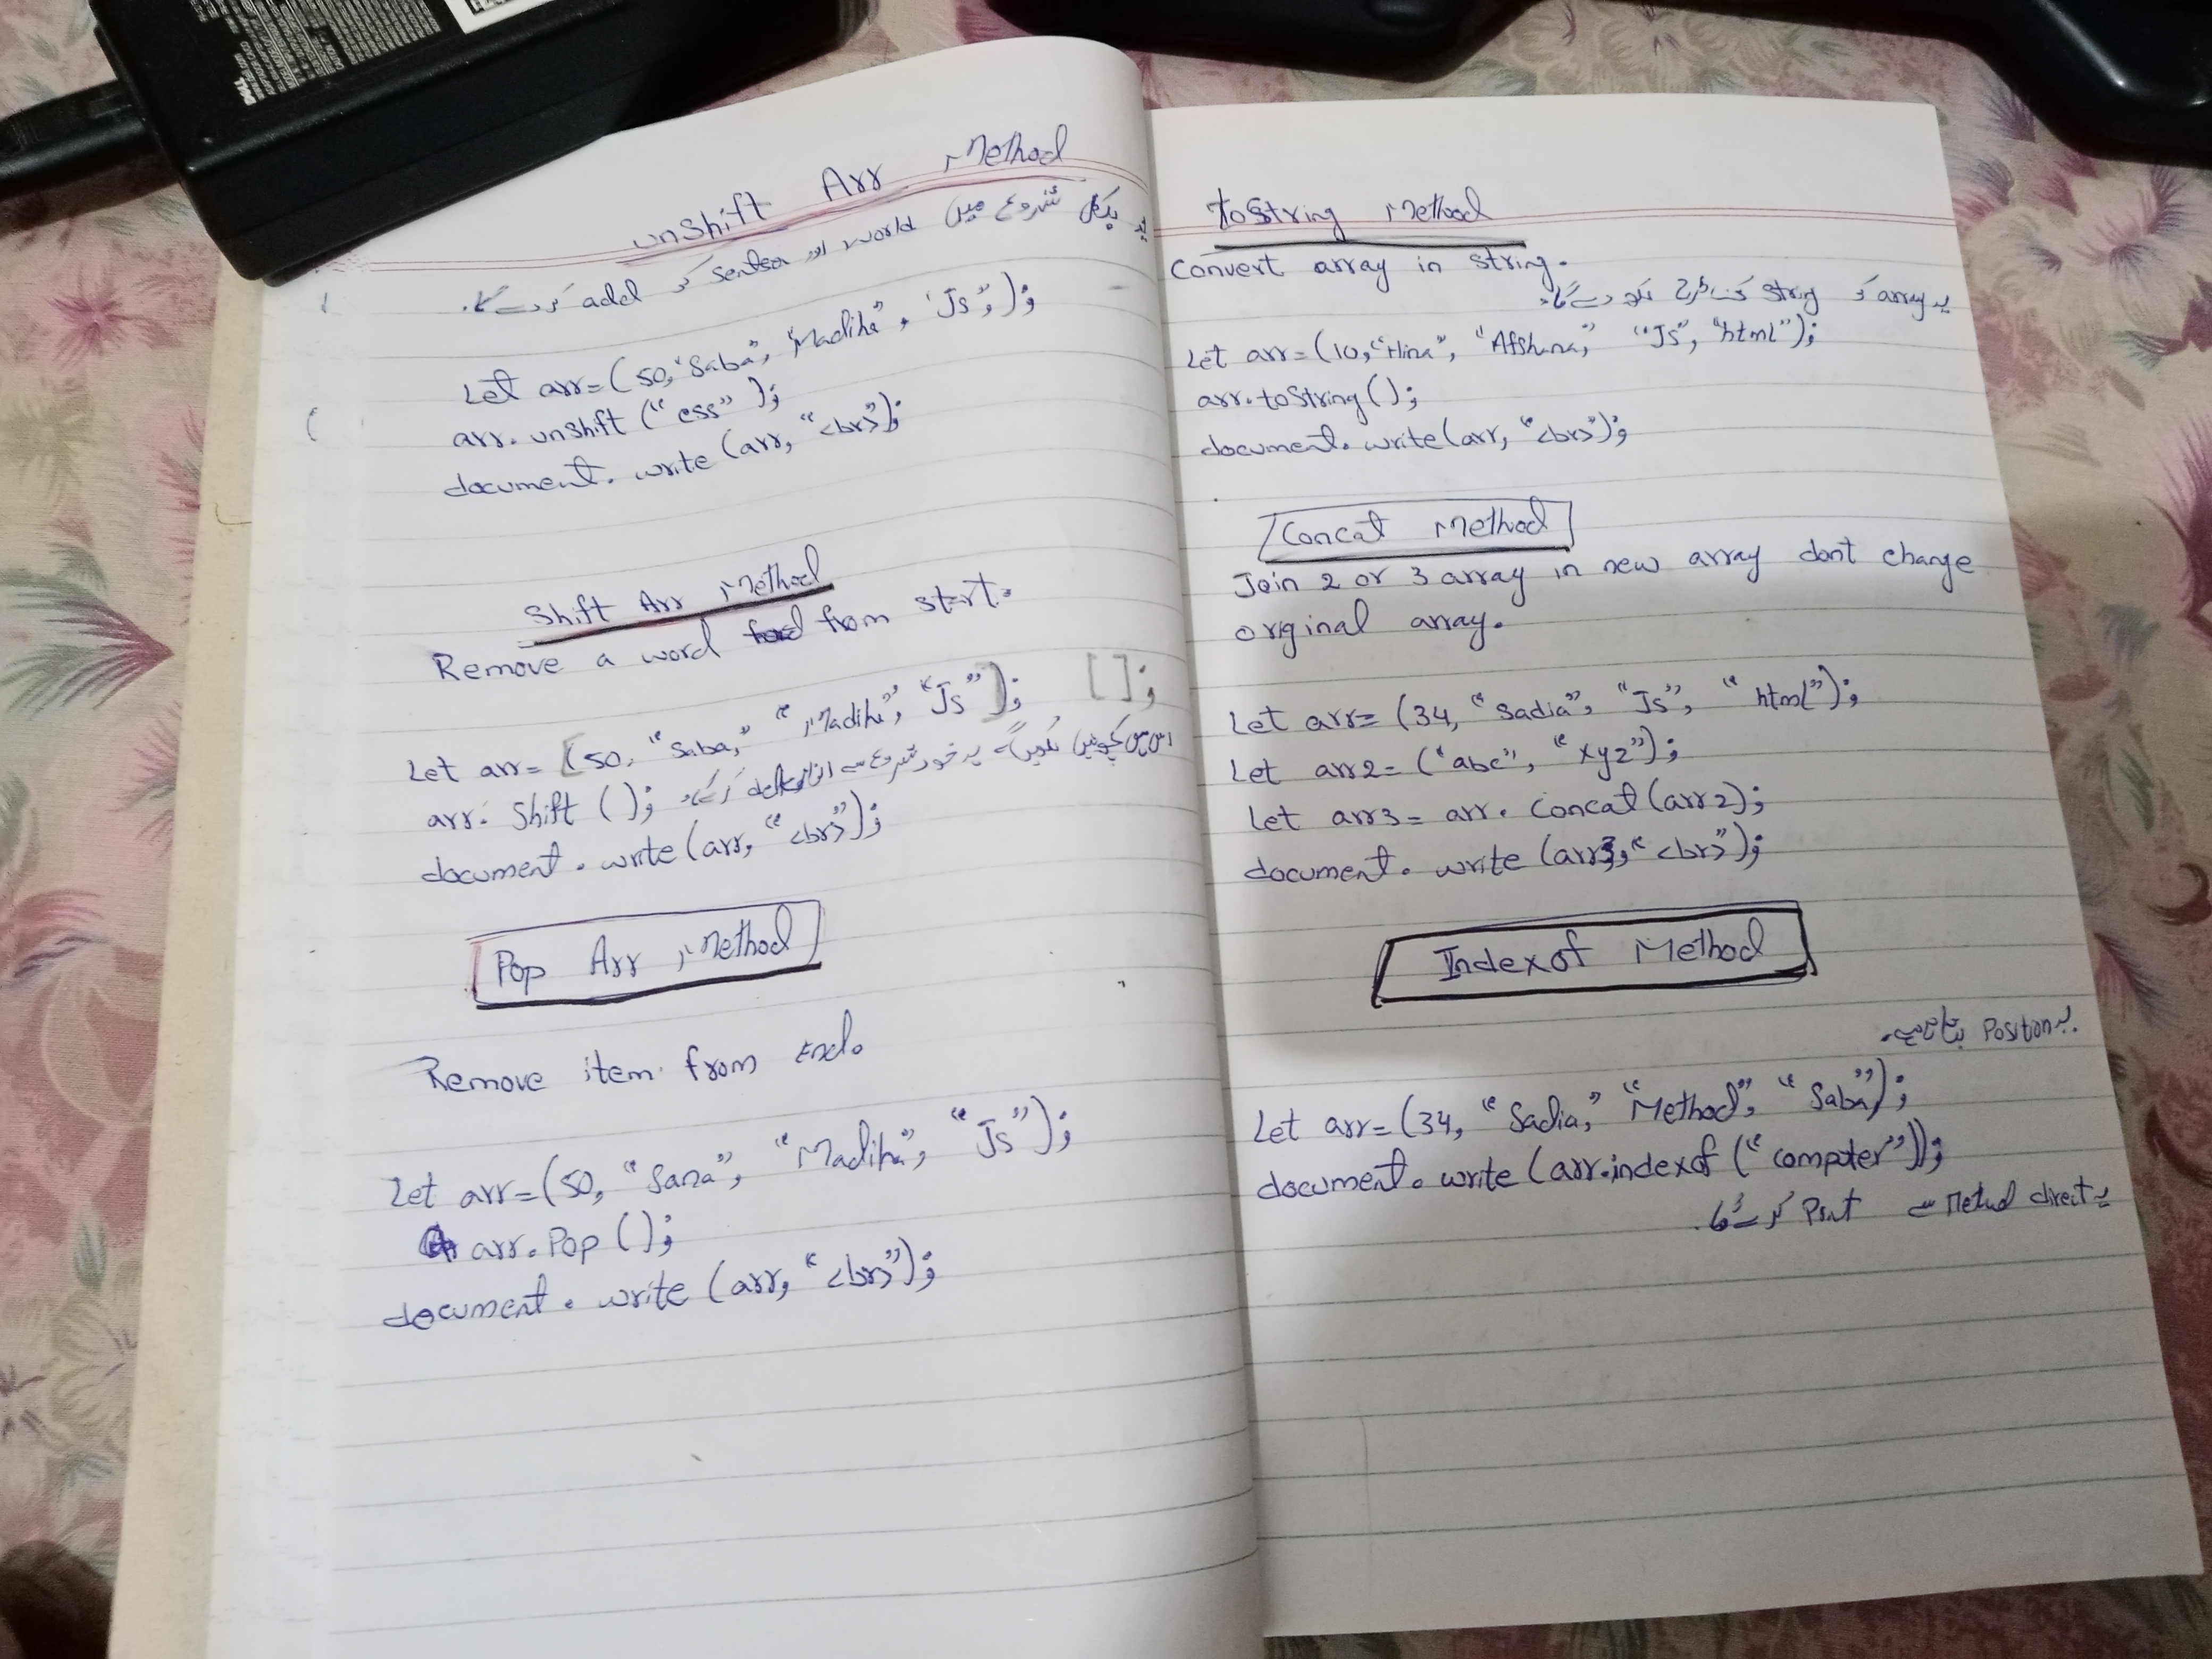 unshift Arr Method
یہ بلکل شروع میں world اور sentsen کو
add کردےگا.
Let arr=(50,"Saba", "Madiha", "Js",);
arr. unshift ("css");
document. write (arr, "<br>");
Shift Arr Method
Remove a word from start.
[];
Let arr= [50, "Saba," "Madiha", "Js"];
اس میں کچھ نہیں لکھیں گے یہ خود شروع سے delete کرےگا.
arr. Shift ();
document. write (arr, "<br>");
Pop Arr Method
Remove item from End.
Let arr=(50, "Sana", "Madiha", "Js");
arr. Pop ();
document. write (arr, "<br>");
toString Method
Convert array in string.
یہ array کو string کی طرح لکھ دے گا.
Let arr=(10,"Hina", "Afshana," "Js", "html");
arr.toString();
document. write(arr, "<br>");
Concat Method
Join 2 or 3 array in new array dont change
original array.
Let arr= (34, "Sadia", "Js", "html");
Let arr2= ("abc", "xyz");
Let arr3= arr. Concat (arr2);
document. write (arr3, "<br>");
Indexof Method
یہ Position بتاتا ہے.
Let arr=(34, "Sadia," "Method", "Saba");
document. write (arr.indexof ("computer"));
یہ direct Method سے Print کرے گا.
DELL